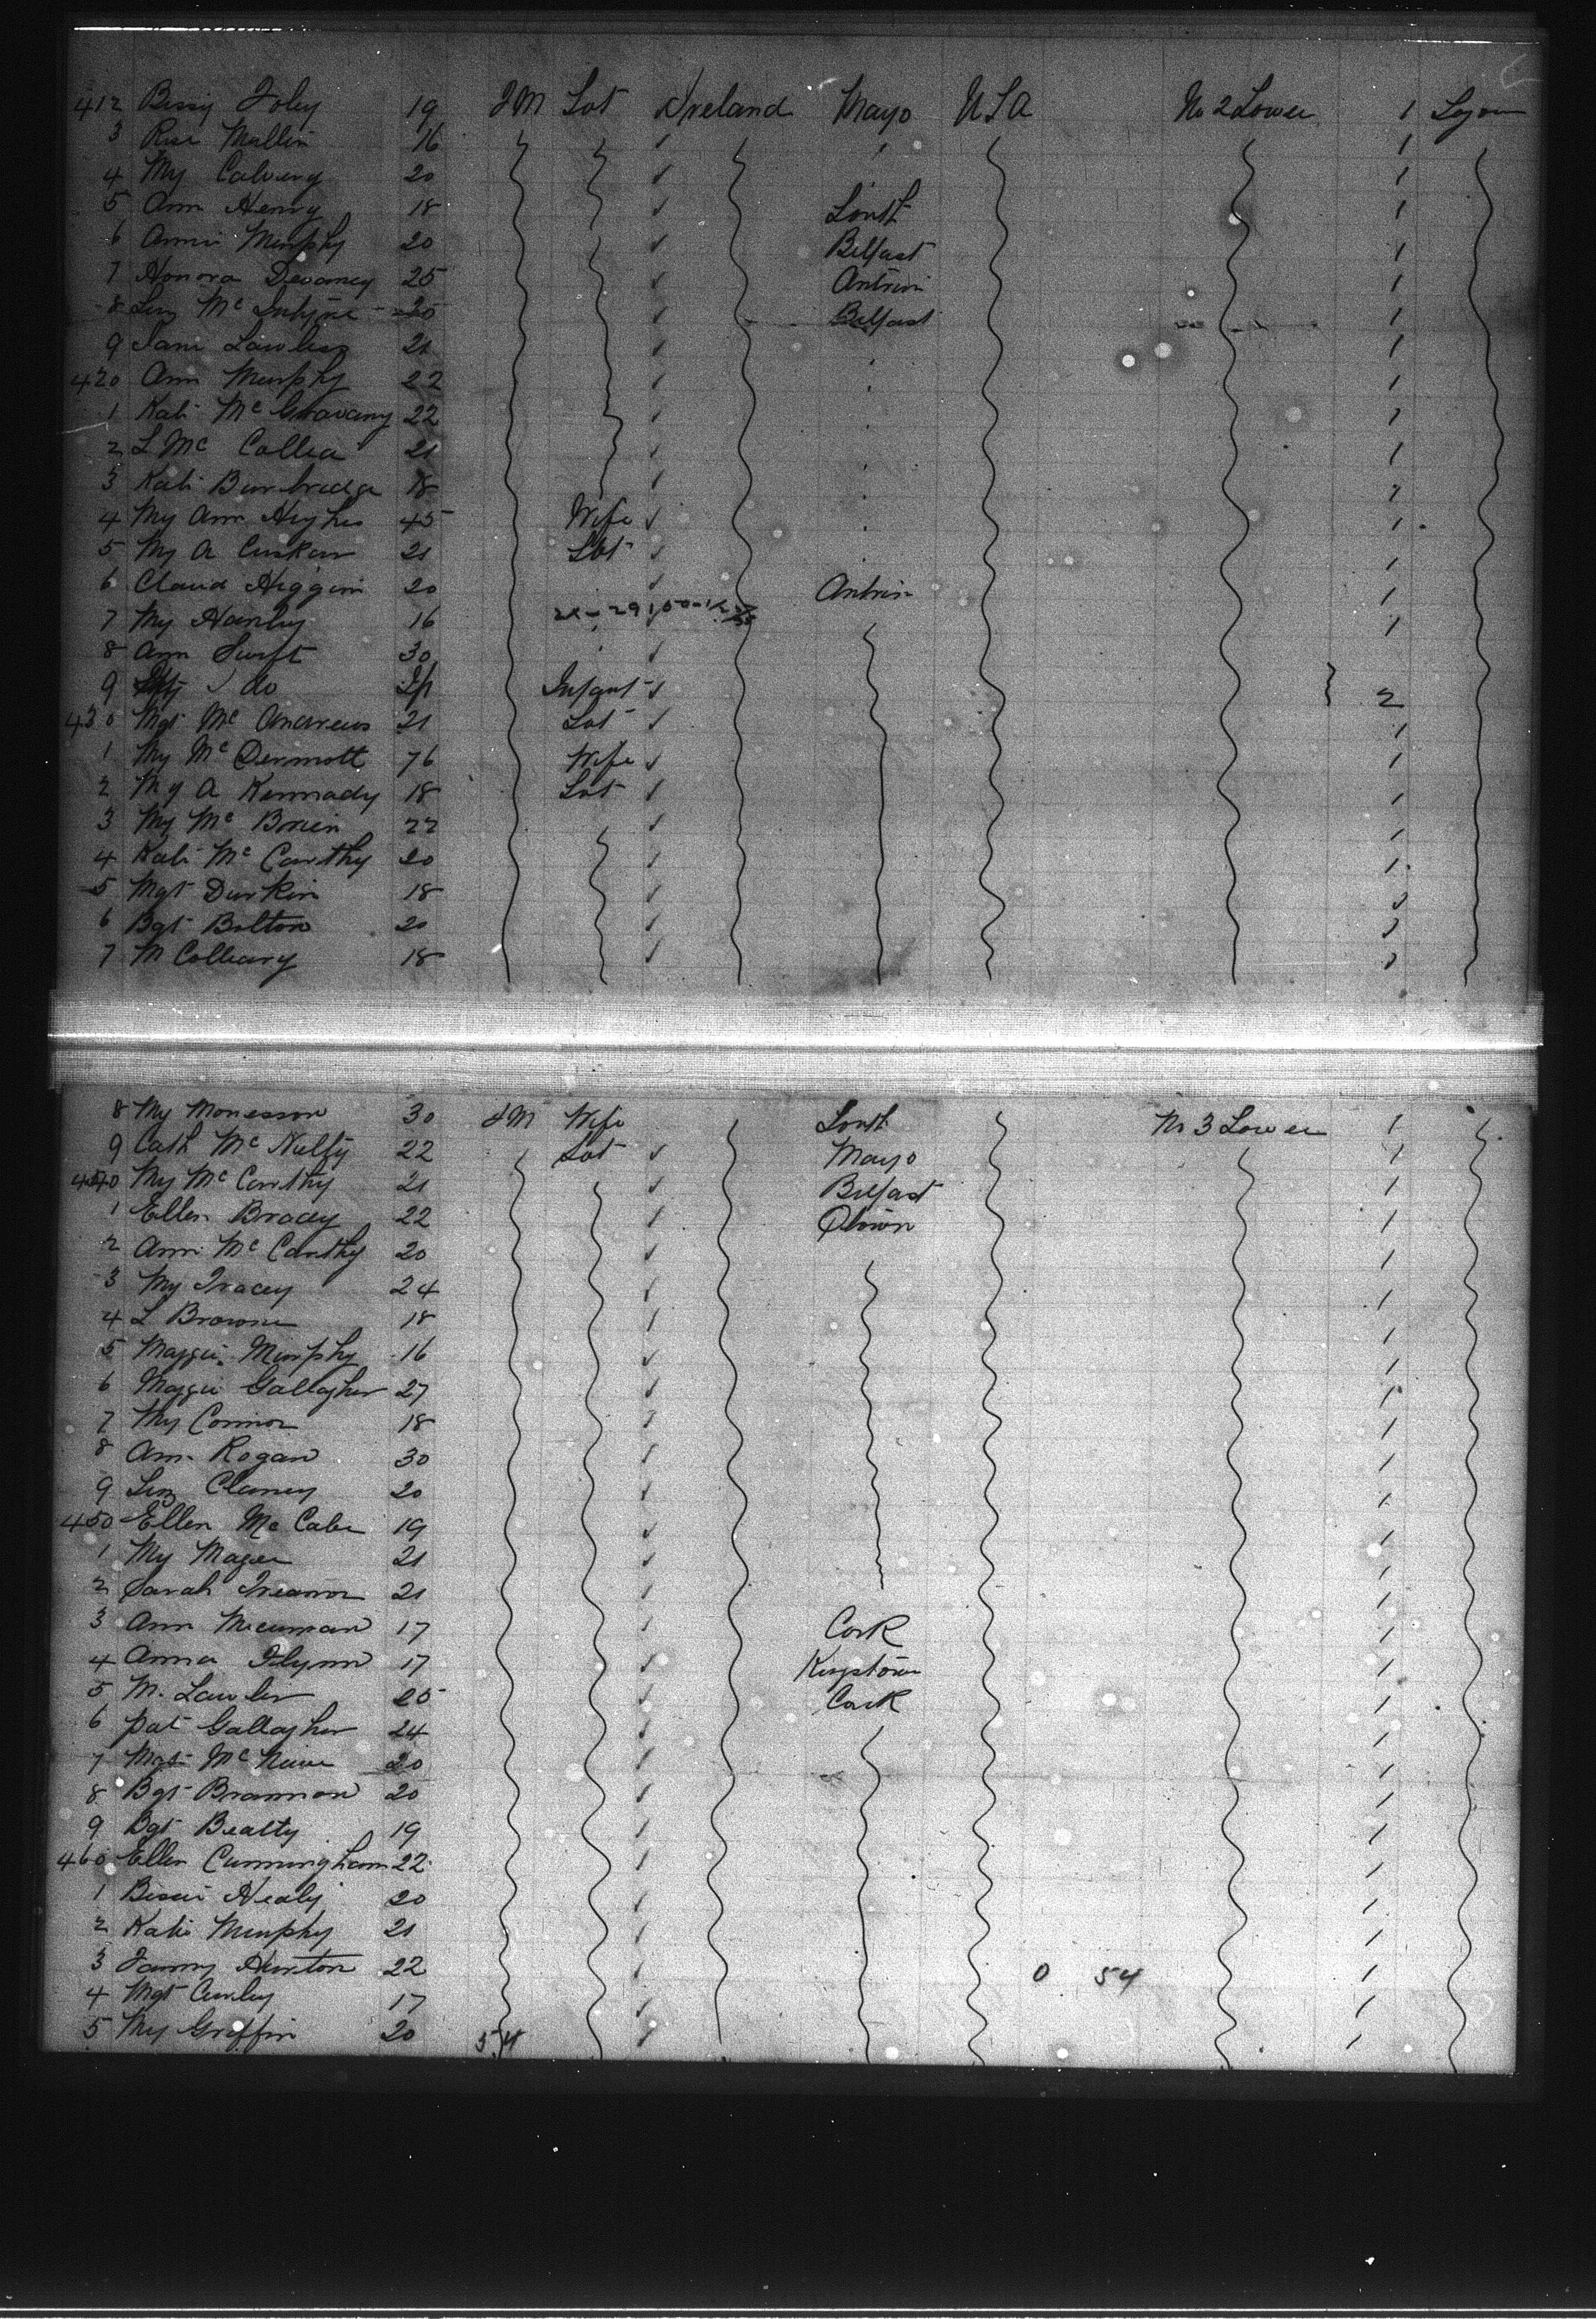 412 Bessy Foley 19 Lot Ireland Mayo USA No 2 Lower 1
3 Rose Mallin 16 1
4 My Calvery 20 1
5 Ann Henry 18 Louth 1
6 Annie Murphy 20 Belfast 1
7 Honora Devaney 25 Antrim 1
8 Liz Mc Intyre 20 Belfast 1
9 Jane Lawless 21 1
420 Ann Murphy 22 1
1 Kati Mc 22 1
2 L Mc Collea 21 1
3 Kati Burbridge 18 1
4 My Ann Hughes 45 Wife 1
5 My A Cuskan 21 Lot 1
6 Claud Higgins 20 Antrim 1
7 My Hanley 16 1
8 Ann Swift 30
9 do Infant 2
430 Mgt Mc Andrews 21 Lot 1
1 My Mc Dermott 76 Wife 1
2 My A Kennady 18 Lot 1
3 My Mc Brien 22 1
4 Kati Mc Carthy 20 1
5 Mgt Durkin 18
6 Bgt Bolton 20
7 M Colleary 18
8 My Monesson 30 Wife Louth No 3 Lower 1
9 Cath Mc Nulty 22 Lot Mayo 1
440 My Mc Carthy 21 Belfast 1
1 Ellen Bracey 22 Down 1
2 Ann Mc Carthy 20 1
3 My Tracey 24 1
4 L Browne 18 1
5 Maggie Murphy 16 1
6 Maggie Gallagher 27 1
7 My Connor 18 1
8 Ann Rogan 30 1
9 Liz Clancy 20 1
450 Ellen Mc Cabe 19 1
1 My Magee 21 1
2 Sarah Treanor 21 1
3 Ann 17 Cork 1
4 Anna Flynn 17 Kingstown 1
5 M. Lawler 25 Cork 1
6 Pat Gallagher 24 1
7 Mgt Mc 20 1
8 Bgt Brannon 20 1
9 Bgt Beatty 19 1
460 Ellen Cunningham 22 1
1 Bessie Healy 20 1
2 Katie Murphy 21 1
3 Fanny Hurton 22 0 54 1
4 Mgt Curley 17 1
5 My Griffin 20 54 1